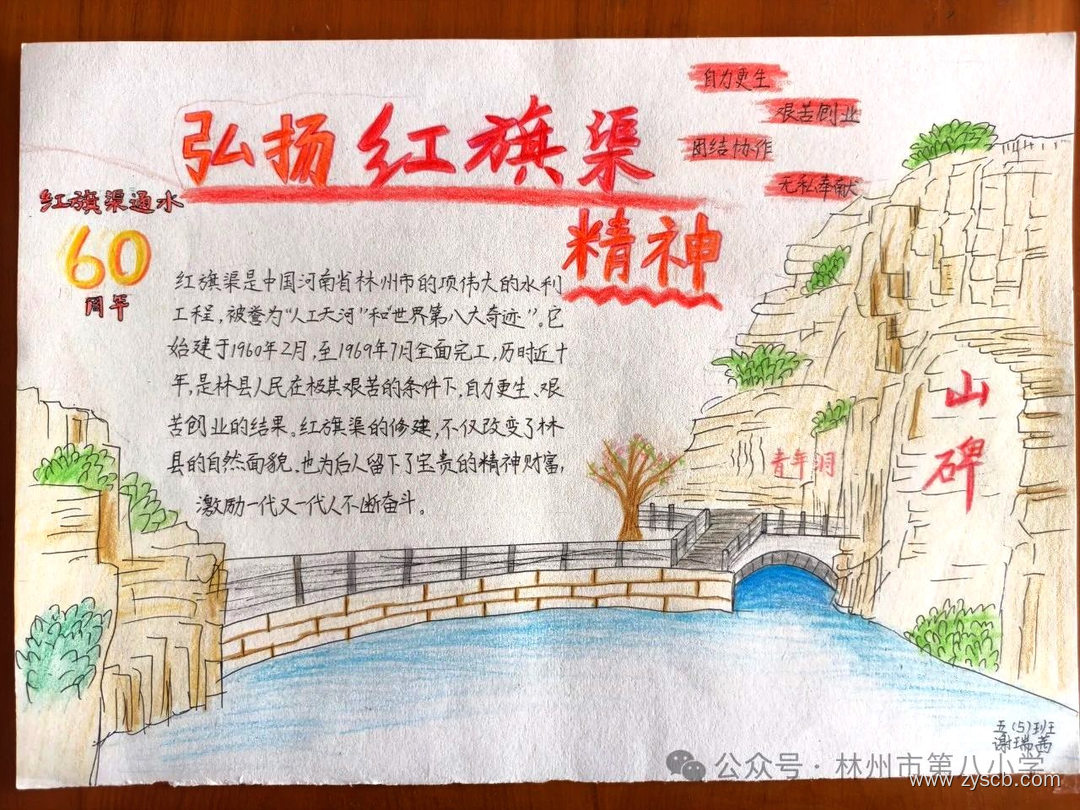 弘扬红旗渠
精神
自力更生
艰苦创业
团结协作
无私奉献
红旗渠通水
60
周年
红旗渠是中国河南省林州市的项伟大的水利
工程，被誉为“人工天河”和“世界第八大奇迹”。它
始建于1960年2月，至1969年7月全面完工，历时近十
年，是林县人民在极其艰苦的条件下，自力更生、艰
苦创业的结果。红旗渠的修建，不仅改变了林
县的自然面貌，也为后人留下了宝贵的精神财富，
激励一代又一代人不断奋斗。
山
碑
青年洞
五(5)班
谢瑞茜
公众号·林州市第八小学
www.zyscb.com